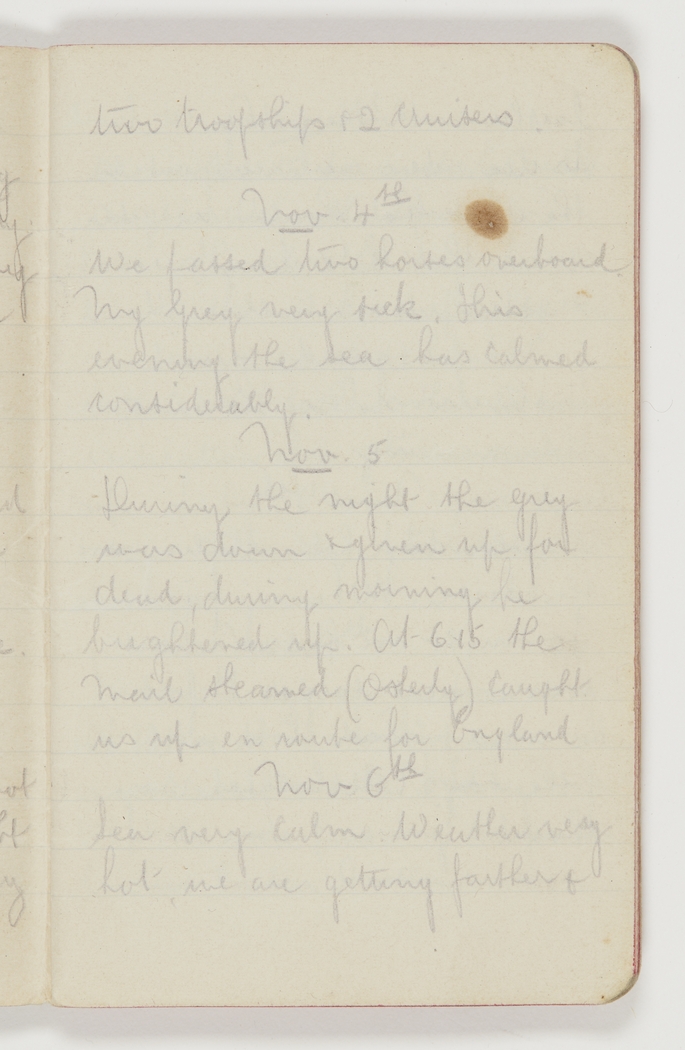 two troopships & 2 Cruisers.
Nov. 4th
We passed two horses overboard.
My Grey very sick. This
evening the sea has calmed
considerably.
Nov. 5
During the night the grey
was down & given up for
dead, during morning he
brightened up. At 6.15 the
Mail steamed (Osterly) caught
us up en route for England
Nov 6th
Sea very calm. Weather very
hot, we are getting farther &